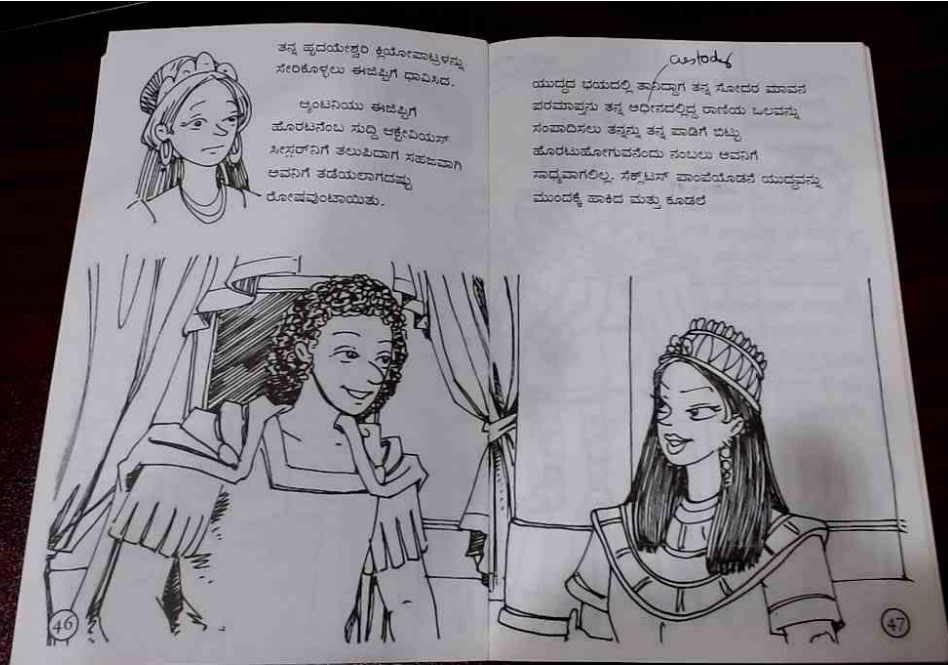 ತನ್ನ ಹೃದಯೇಶ್ವರಿ ಕ್ಲಿಯೋಪಾಟ್ರಳನ್ನು
ಸೇರಿಕೊಳ್ಳಲು ಈಜಿಪ್ಟಿಗೆ ಧಾವಿಸಿದ.
ಆ್ಯಂಟನಿಯು ಈಜಿಪ್ಟಿಗೆ
ಹೊರಟನೆಂಬ ಸುದ್ದಿ ಆಕ್ಟೇವಿಯಸ್
ಸೀಸ್ಸರ್‌ನಿಗೆ ತಲುಪಿದಾಗ ಸಹಜವಾಗಿ
ಅವನಿಗೆ ತಡೆಯಲಾಗದಷ್ಟು
ರೋಷವುಂಟಾಯಿತು.
46
custody
ಯುದ್ಧದ ಭಯದಲ್ಲಿ ತಾನಿದ್ದಾಗ ತನ್ನ ಸೋದರ ಮಾವನ
ಪರಮಾಪ್ತನು ತನ್ನ ಅಧೀನದಲ್ಲಿದ್ದ ರಾಣಿಯ ಒಲವನ್ನು
ಸಂಪಾದಿಸಲು ತನ್ನನ್ನು ತನ್ನ ಪಾಡಿಗೆ ಬಿಟ್ಟು
ಹೊರಟುಹೋಗುವನೆಂದು ನಂಬಲು ಅವನಿಗೆ
ಸಾಧ್ಯವಾಗಲಿಲ್ಲ. ಸೆಕ್ಸ್‌ಟಸ್ ಪಾಂಪೆಯೊಡನೆ ಯುದ್ಧವನ್ನು
ಮುಂದಕ್ಕೆ ಹಾಕಿದ ಮತ್ತು ಕೂಡಲೆ
47